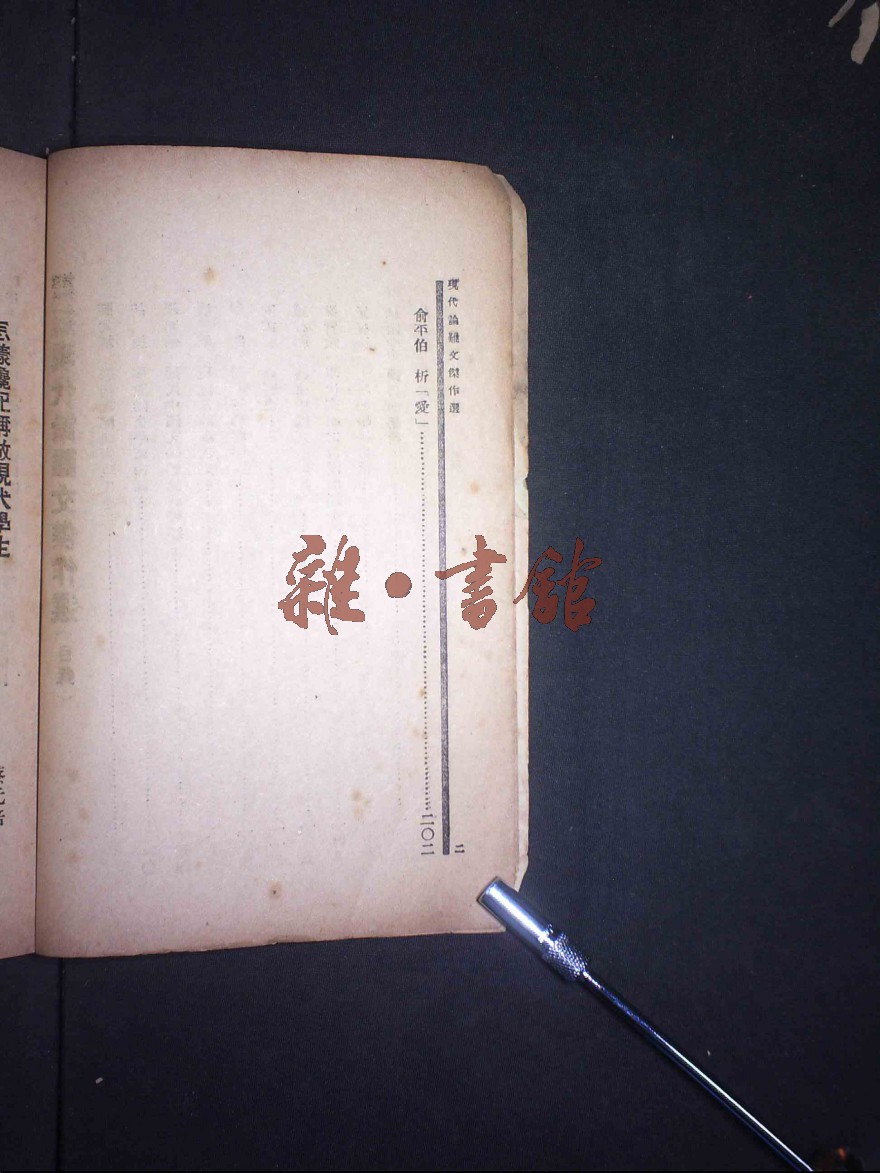 現代論雜文傑作選
俞平伯　析「愛」……二〇二
二
怎樣纔配稱做現代學生
雜·書館